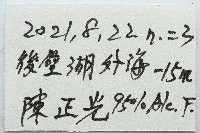 2021,8,22 n.=3
後壁湖外海-15m
陳正光 95% Alc. F.